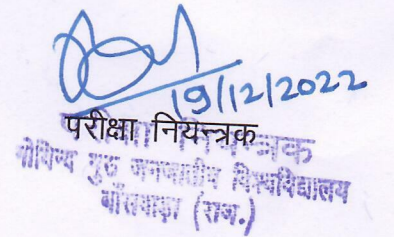 19/12/2022
परीक्षा नियन्त्रक
परीक्षा नियन्त्रक
गोविन्द गुरु जनजातीय विश्वविद्यालय
बाँसवाड़ा (राज.)